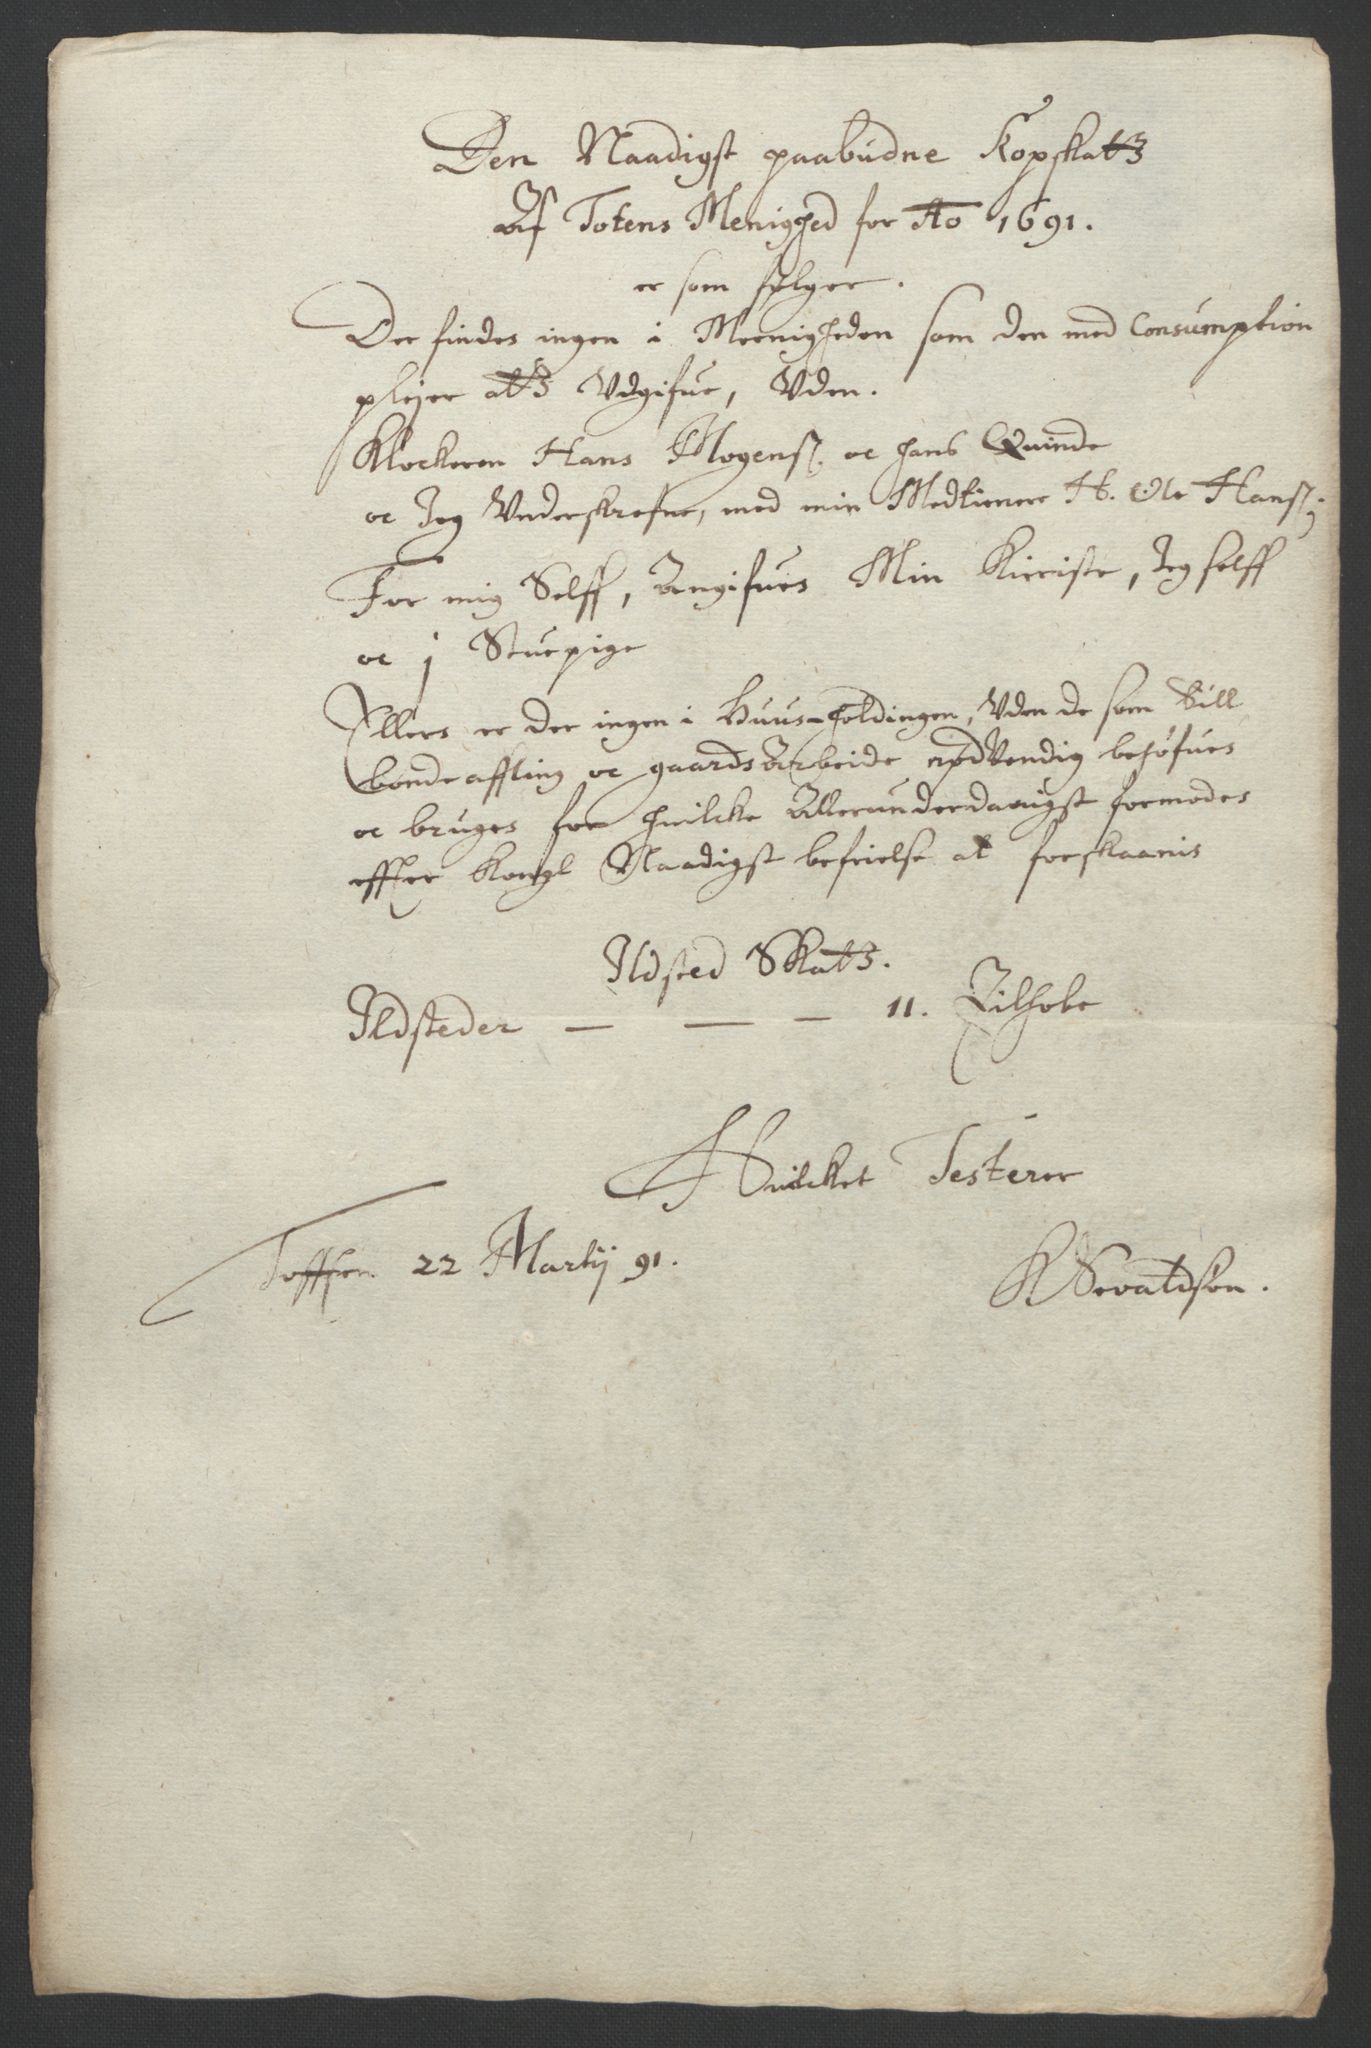 Den Naadigst paabudne Kopskatt
Af Totens Menighed for Ao 1691.
er som følger.
Der findes ingen i Meenigheden som den med Consumption
plejer att Vdgifue, Vden.
Klockeren Hans Mogens. oc hans Quinde
oc Jeg Vnderskrefne, med min Medtienere H. Ole Hans.
For mig Selff, Angifues Min Kieriste, Jeg selff
oc j Stuepige
Ellers er der ingen i Huus-holdingen, Vden de som till
bonde affling oc gaards Arbeide nødVendig behøfues
oc bruges for huilcke Allerunderdanigst formodes
effter Kongl Naadigst befrielse at forskaanis
Ildsted Skatt.
Ildsteder — — — 11.
Huilcket Testerer
22 Martij 91.
K Sevaldson.